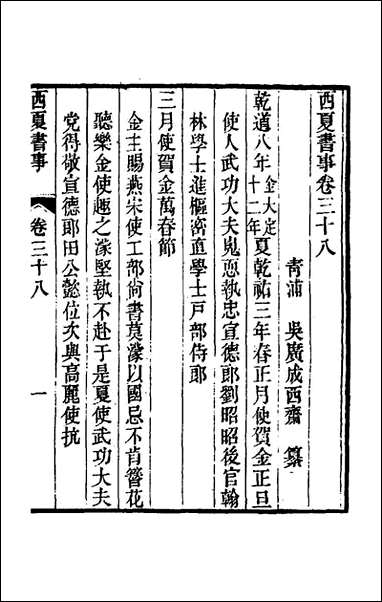 西夏書事卷三十八
青浦　吳廣成西齋　纂
乾道八年金大定十二年夏乾祐三年春正月使賀金正旦
使人武功大夫嵬恧執忠宣德郎劉昭昭後官翰
林學士進樞密直學士戶部侍郎
三月使賀金萬春節
金主賜燕宋使工部尚書莫濛以國忌不肯簪花
聽樂金使趣之濛堅執不赴于是夏使武功大夫
党得敬宣德郎田公懿位次與高麗使抗
西夏書事　卷三十八　一